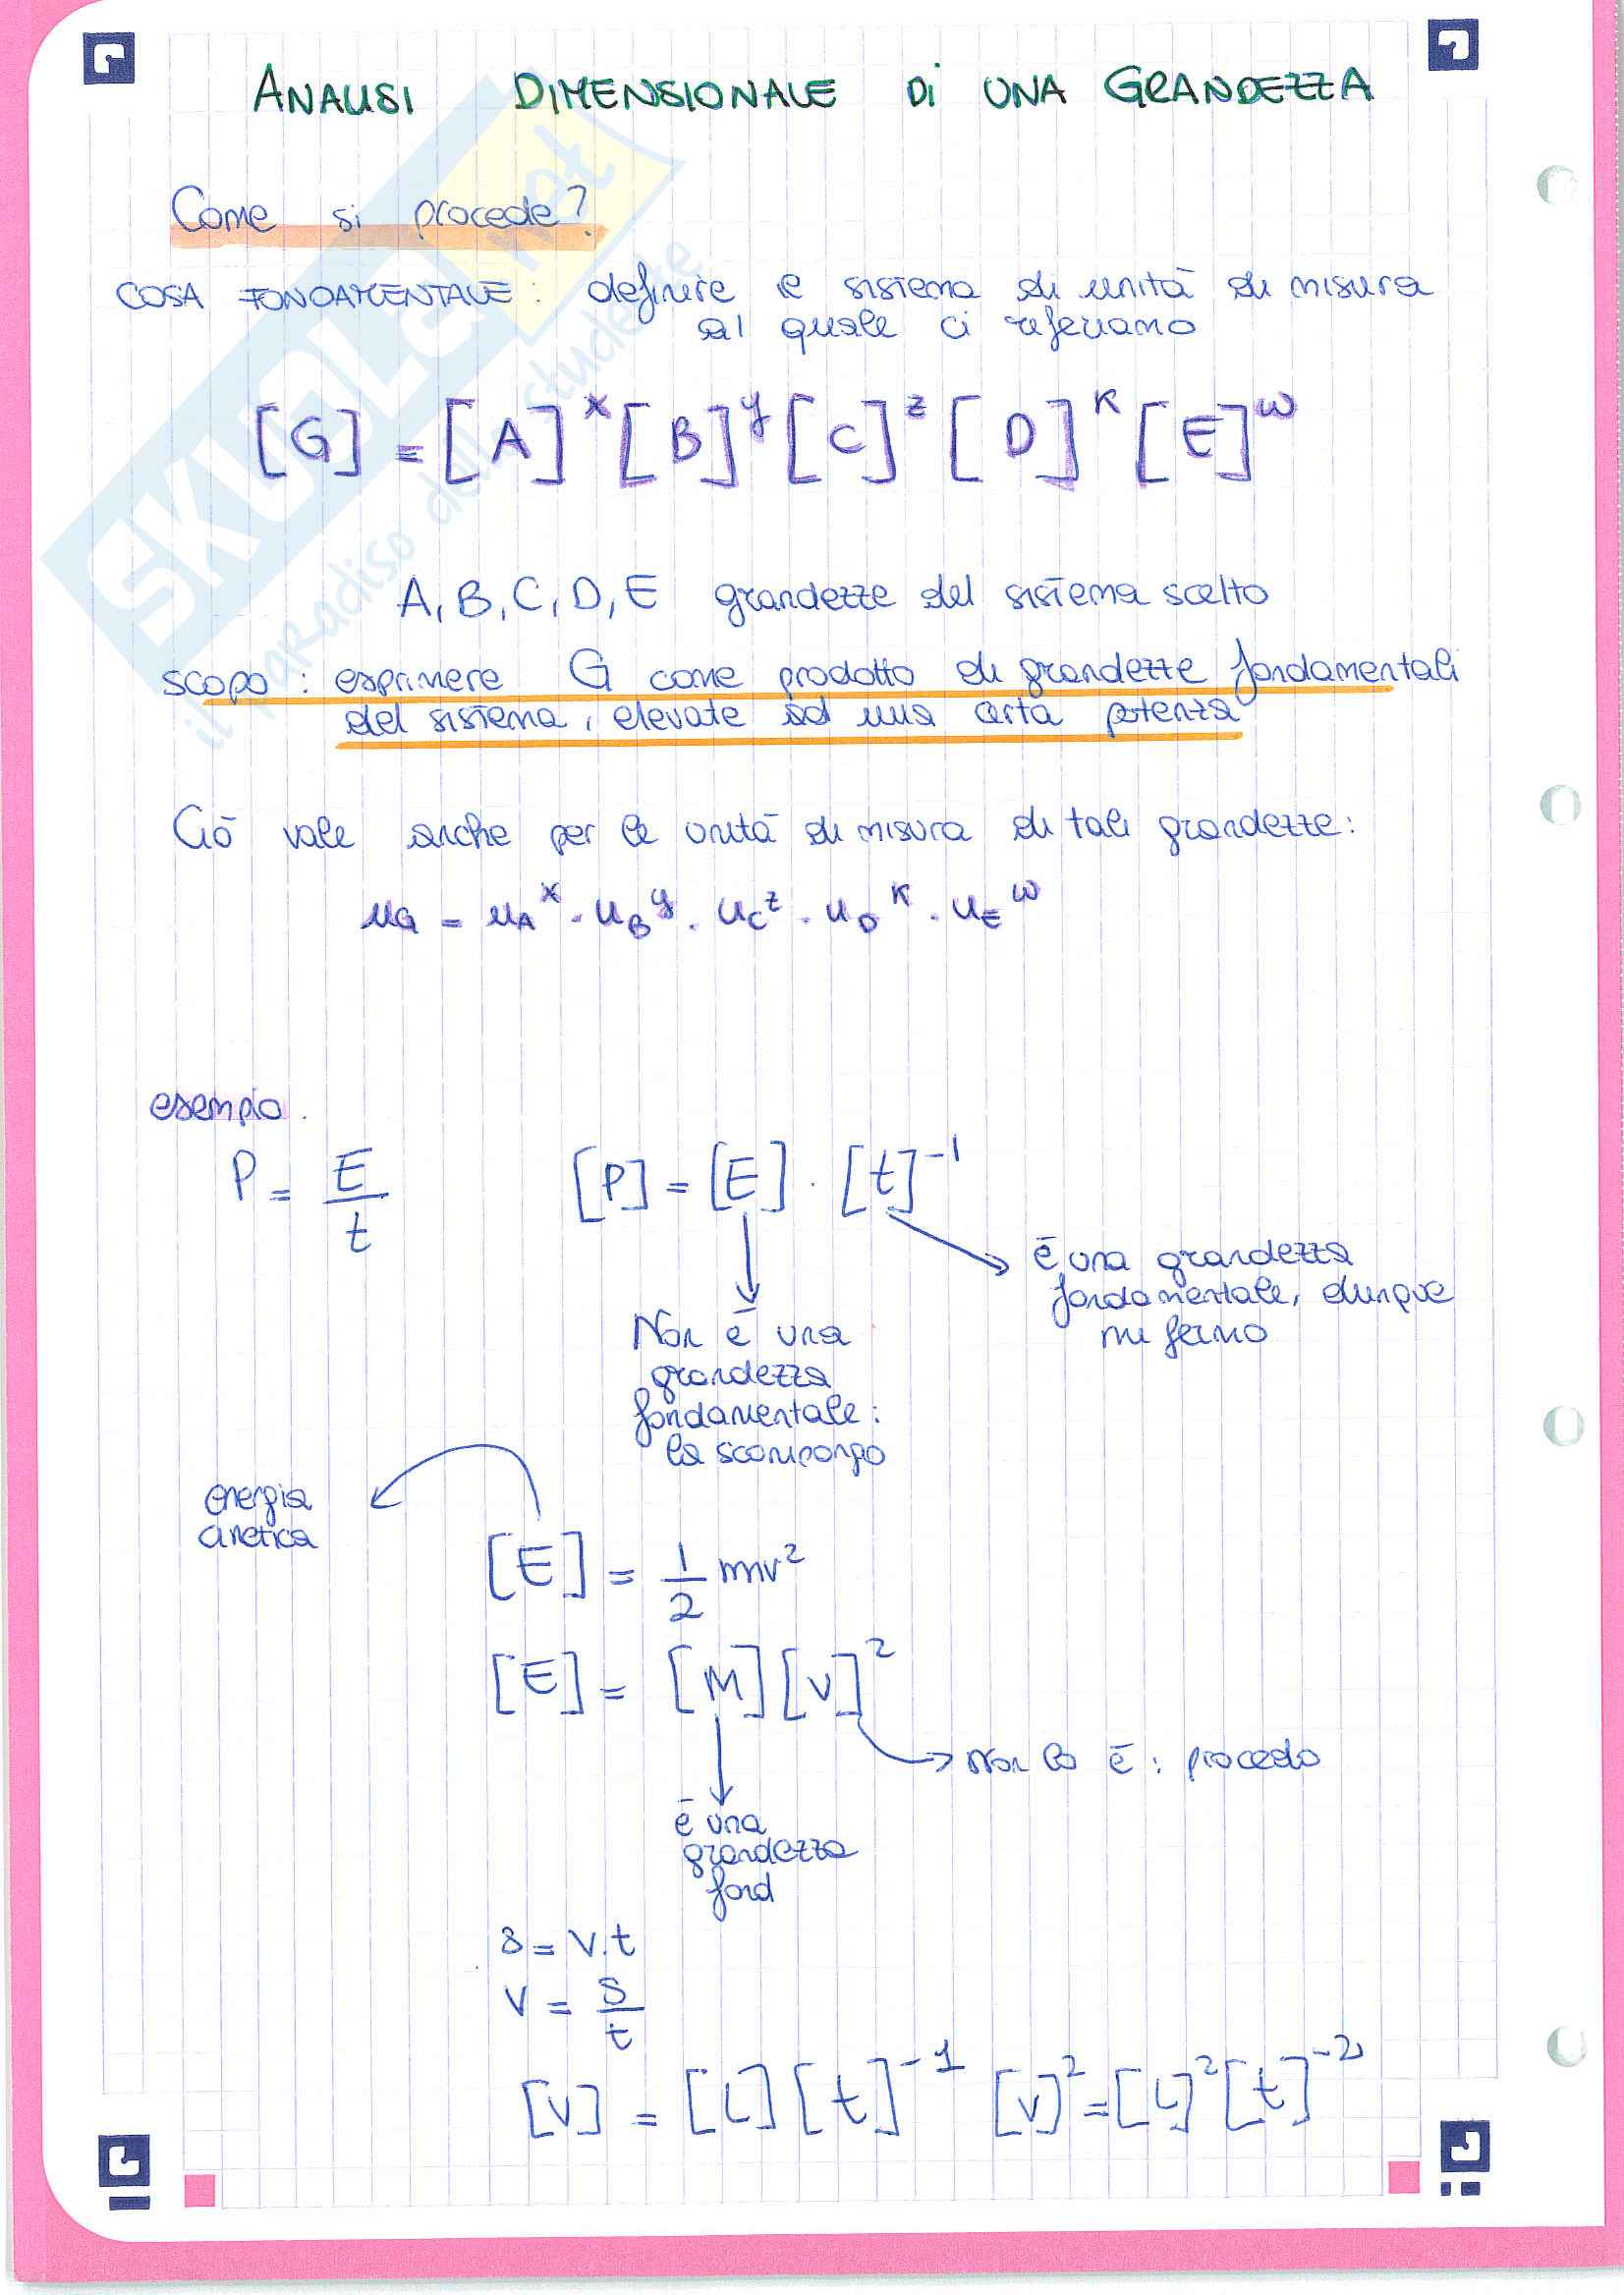 ANALISI DIMENSIONALE DI UNA GRANDEZZA
Come si procede?
COSA FONDAMENTALE: definire il sistema di unità di misura
al quale ci riferiamo
[G] = [A]^x [B]^y [C]^z [D]^k [E]^w
A, B, C, D, E grandezze del sistema scelto
scopo: esprimere G come prodotto di grandezze fondamentali
del sistema, elevate ad una certa potenza
Ciò vale anche per le unità di misura di tali grandezze:
u_G = u_A^x · u_B^y · u_C^z · u_D^k · u_E^w
esempio.
P = E/t [P] = [E] · [t]^-1
è una grandezza
fondamentale, dunque
mi fermo
Non è una
grandezza
fondamentale:
la scompongo
energia
cinetica
[E] = 1/2 mv²
[E] = [M][V]²
Non lo è: procedo
è una
grandezza
fond
s = v.t
v = s/t
[V] = [L][t]^-1 [V]² = [L]²[t]^-2
SKUOLA.net
il paradiso dello studente